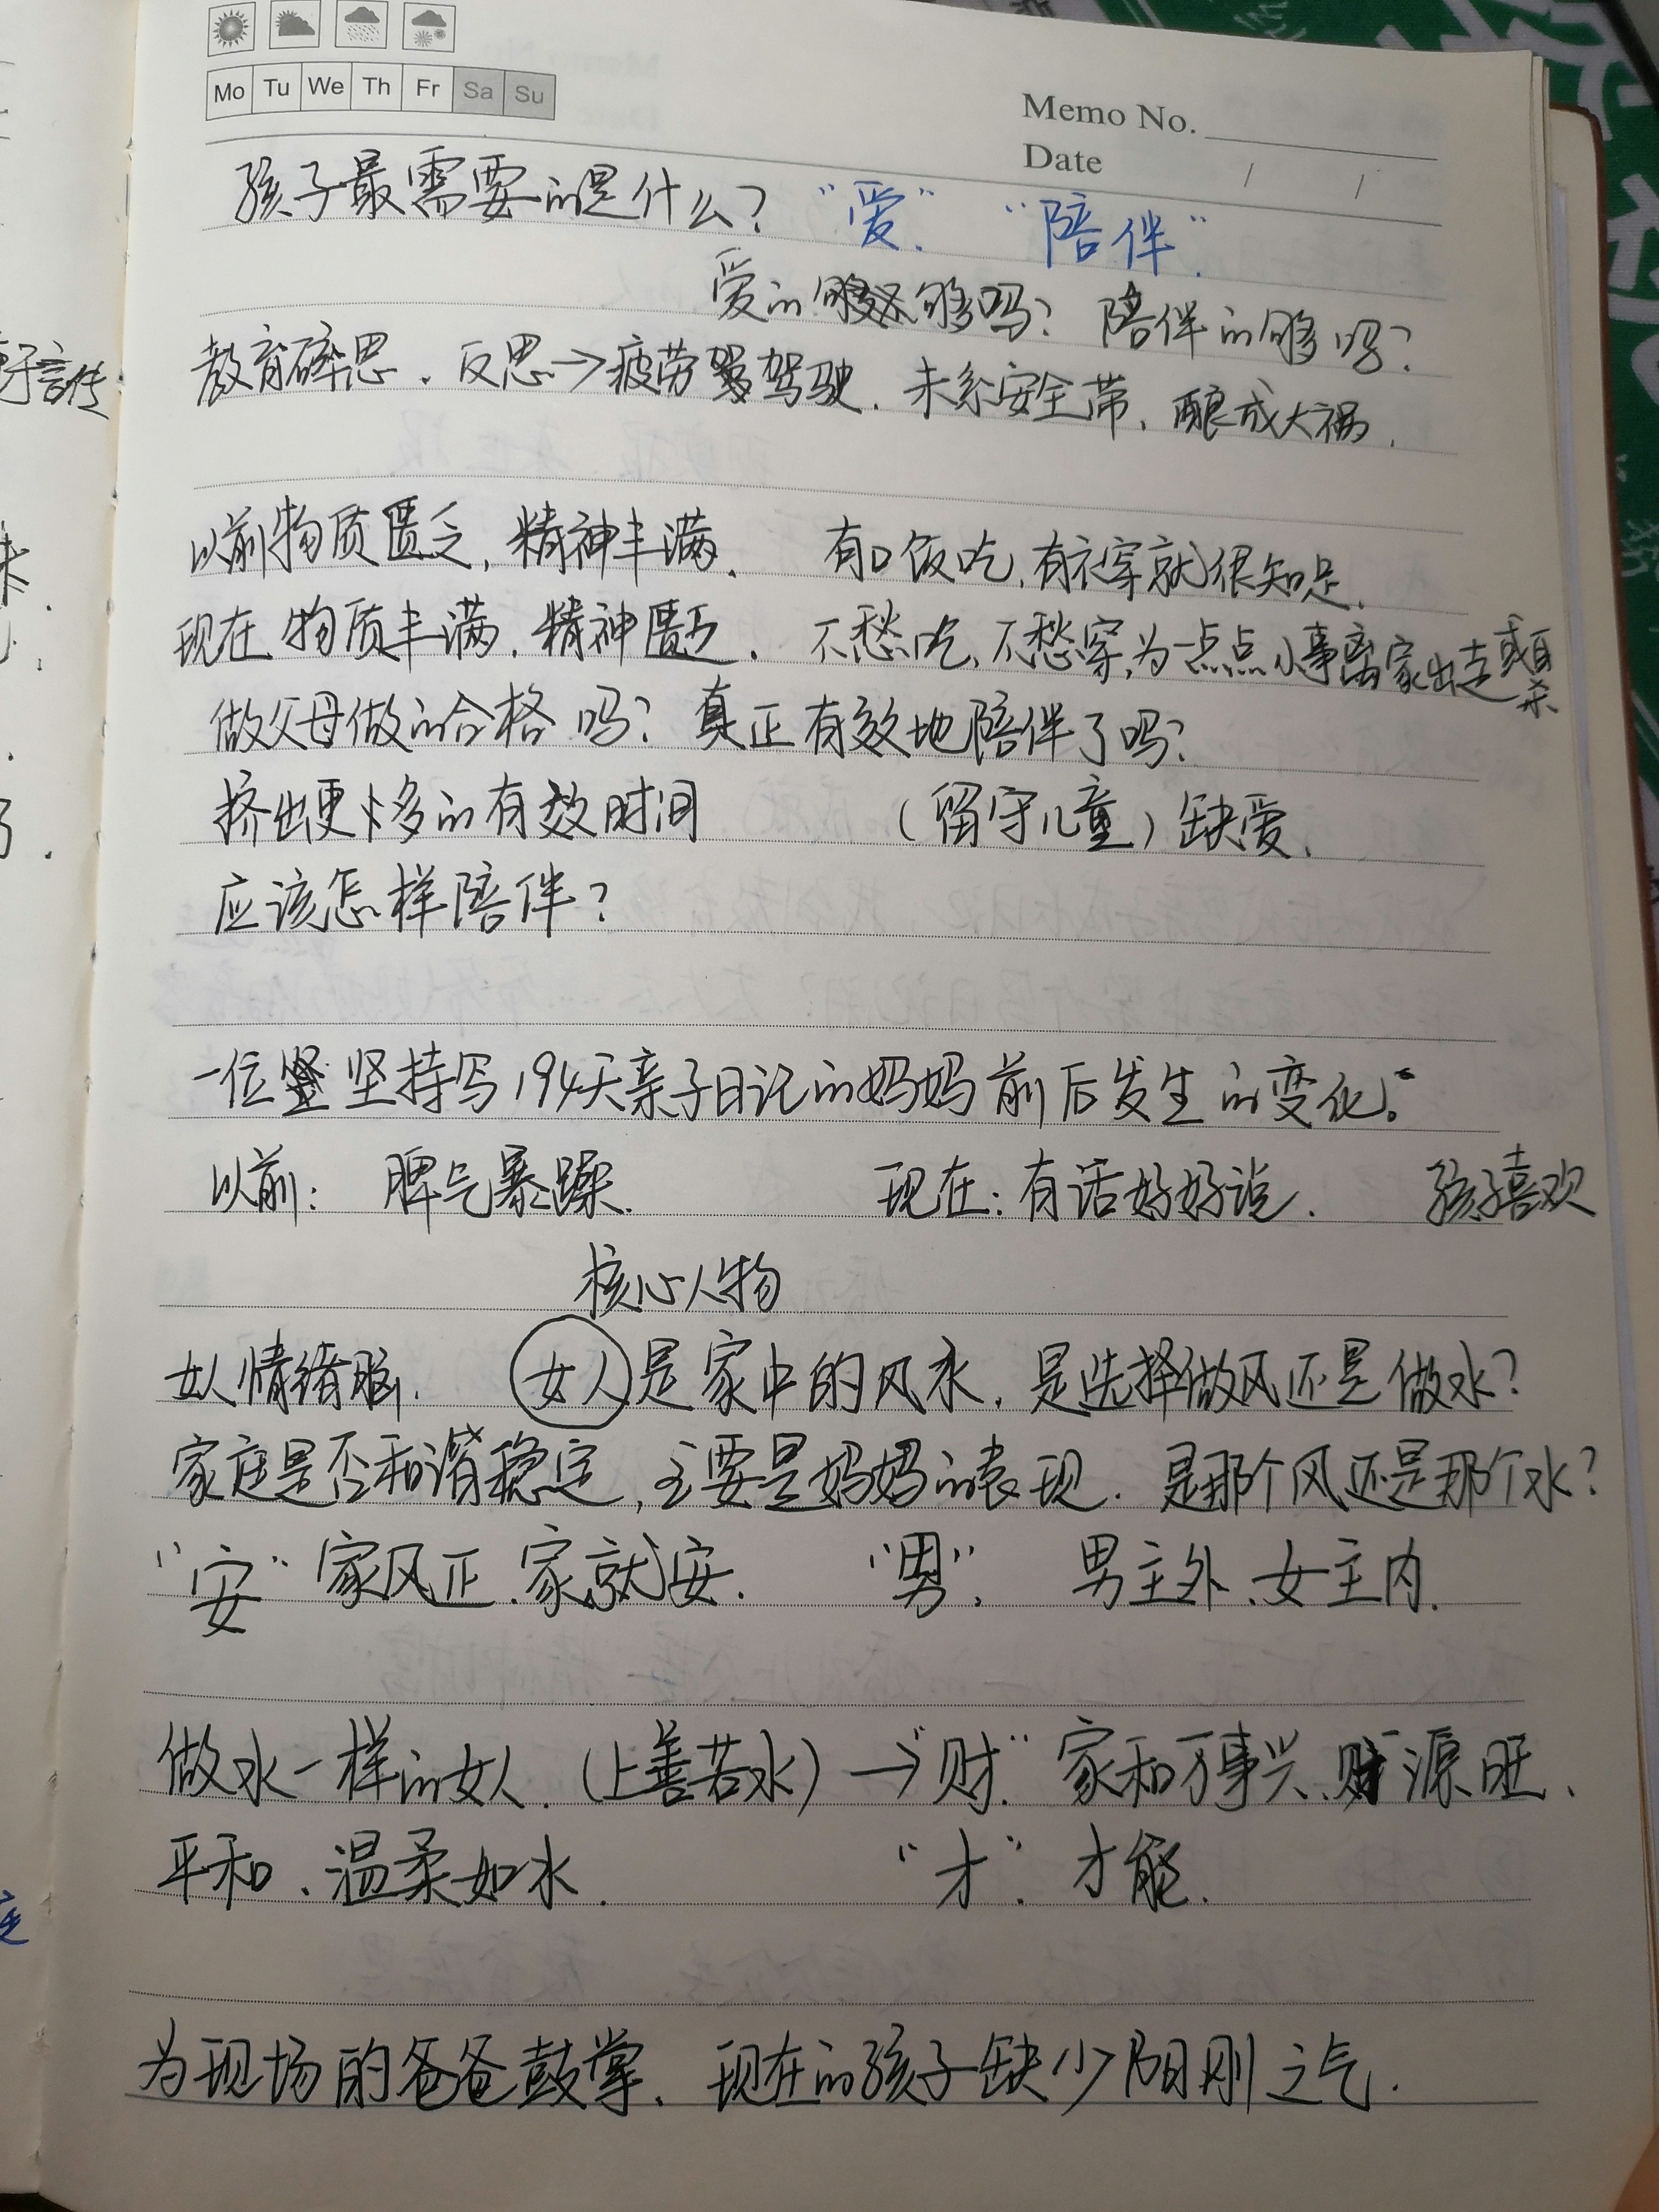 Mo Tu We Th Fr Sa Su
Memo No.
Date / /
孩子最需要的是什么? “爱”. “陪伴”.
爱的够吗? 陪伴的够吗?
教育碎思. 反思→疲劳驾驶. 未系安全带, 酿成大祸.
以前物质匮乏, 精神丰满. 有口饭吃, 有衣穿就很知足.
现在物质丰满, 精神匮乏. 不愁吃, 不愁穿, 为一点点小事离家出走或自杀
做父母做的合格吗? 真正有效地陪伴了吗?
挤出更多的有效时间 (留守儿童) 缺爱.
应该怎样陪伴?
一位坚持写194天亲子日记的妈妈前后发生的变化。
以前: 脾气暴躁. 现在: 有话好好说. 孩子喜欢
核心人物
女人情绪脑. 女人是家中的风水, 是选择做风还是做水?
家庭是否和谐稳定, 主要是妈妈的表现. 是那个风还是那个水?
“安” 家风正, 家就安. “男”. 男主外, 女主内.
做水一样的女人. (上善若水) →“财.” 家和万事兴, 财源旺.
平和、温柔如水. “才”. 才能.
为现场的爸爸鼓掌. 现在的孩子缺少阳刚之气.
言传